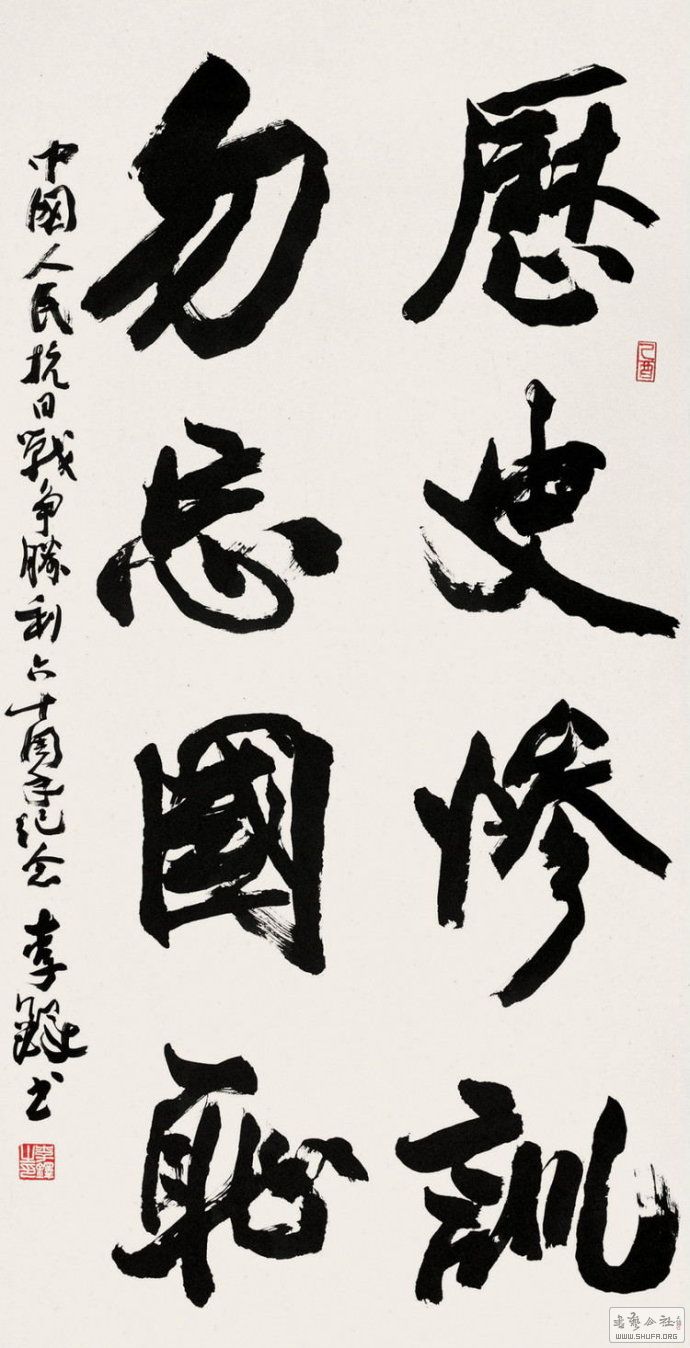 歷史慘訓
勿忘國恥
中國人民抗日戰爭勝利六十周年纪念 李鐸书
乙酉
李鐸之印
書藝公社
WWW.SHUFA.ORG